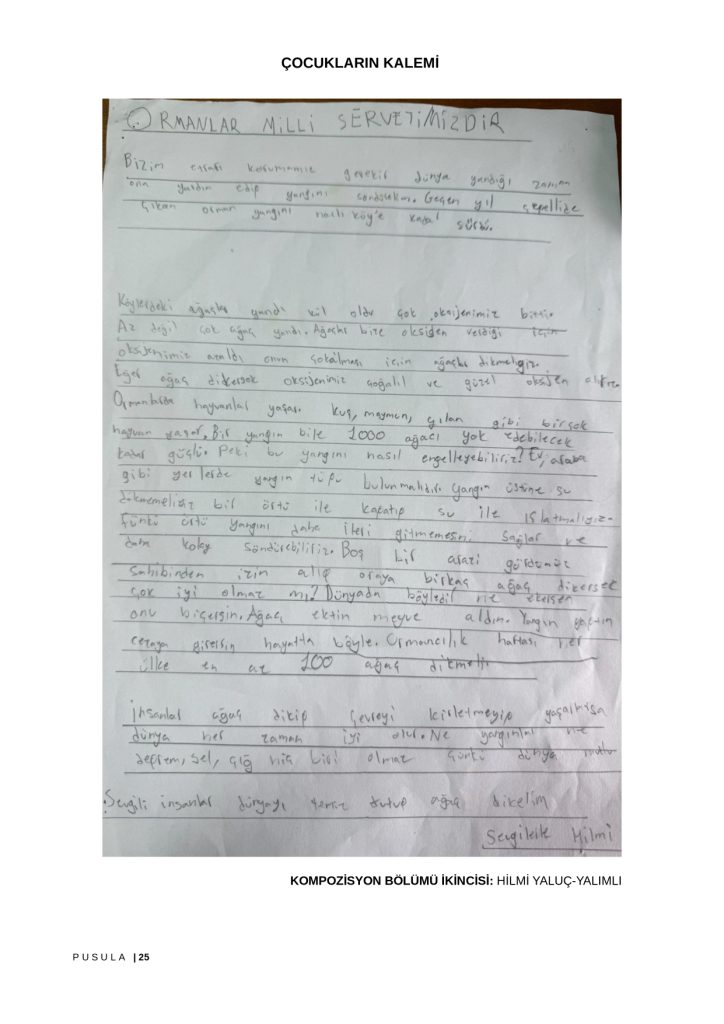 ÇOCUKLARIN KALEMİ
ORMANLAR MİLLİ SERVETİMİZDİR
Bizim etrafı korumamız gerekir dünya yandığı zaman
ona yardım edip yangını söndürelim. Geçen yıl
çıkan orman yangını naslı köy'e kadar sürdü.
Köylerdeki ağaçlar yandı kül oldu çok oksijenimiz bitti.
Az değil çok ağaç yandı. Ağaçlar bize oksijen verdiği için
oksijenimiz azaldı onun çoğalması için ağaçlar dikmeliyiz.
Eğer ağaç dikersek oksijenimiz çoğalıl ve güzel oksijen alırız
Ormanlarda hayvanlar yaşar. Kuş, maymun, yılan gibi birçok
hayvan yaşar. Bir yangın bile 1000 ağacı yok edebilecek
kadar güçlü. Peki bu yangını nasıl engelleyebiliriz? Ev, araba
gibi yerlerde yangın tüpü bulunmalıdır. Yangın üstüne su
dökmemeliyiz bir örtü ile kapatıp su ile ıslatmalıyız.
Çünkü örtü yangını daha ileri gitmemesini sağlar ve
daha kolay söndürebiliriz. Boş bir arazi görürseniz
sahibinden izin alıp oraya birkaç ağaç dikersek
çok iyi olmaz mı? Dünyada böyledir ne ekersen
onu biçersin. Ağaç ektin meyve aldın. Yangın yaptın
cezaya girersin hayatta böyle. Ormancılık haftası her
ülke en az 100 ağaç dikmeli.
İnsanlar ağaç dikip çevreyi kirletmeyip yaşatırsa
dünya her zaman iyi olur. Ne yangınlar ne
deprem, sel, çığ hiç biri olmaz çünkü dünya mutlu
Sevgili insanlar dünyayı temiz tutup ağaç dikelim
Sevgilerle Hilmi
KOMPOZİSYON BÖLÜMÜ İKİNCİSİ: HİLMİ YALUÇ-YALIMLI
PUSULA | 25